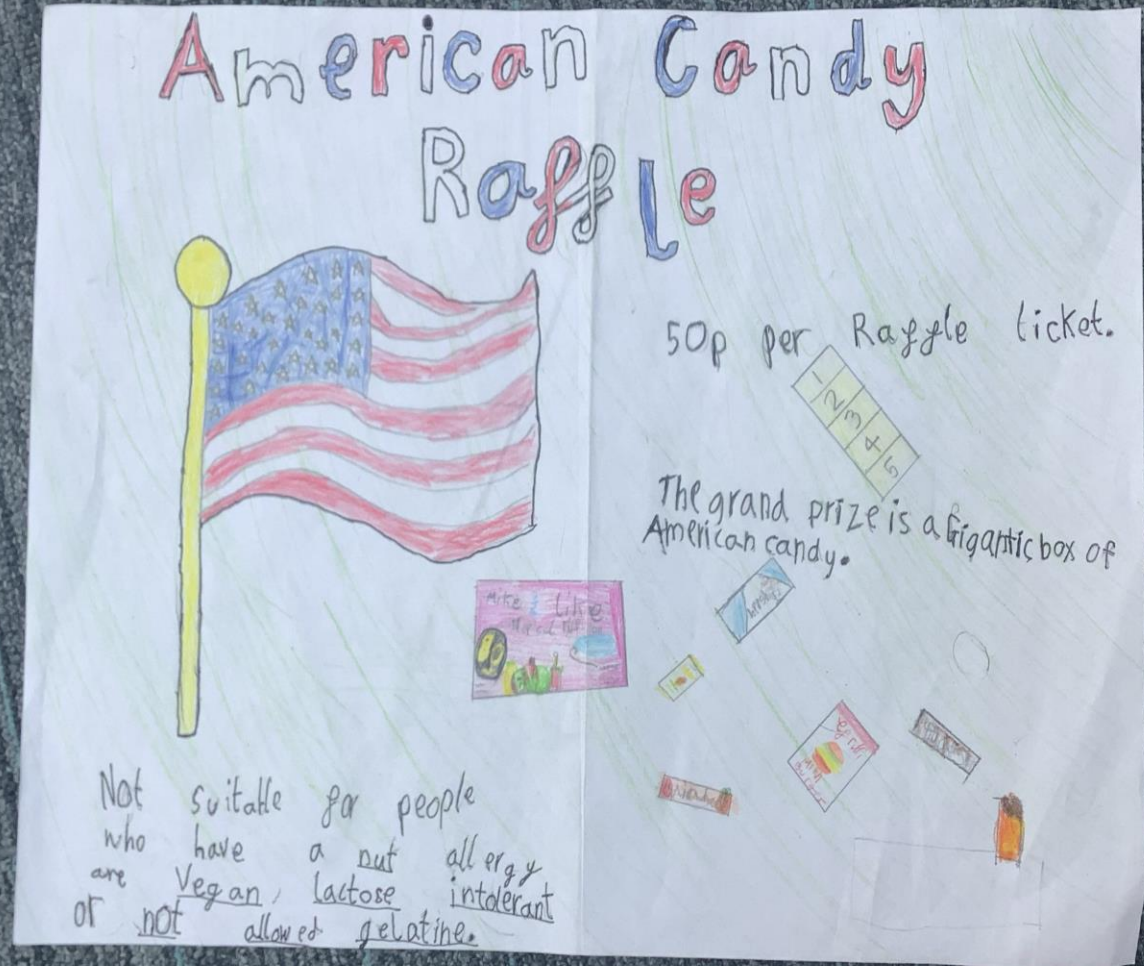 American Candy
Raffle
50p per Raffle ticket.
1
2
3
4
5
The grand prize is a Gigantic box of
American candy.
Mike & Like
Not suitable for people
who have a nut allergy
are Vegan, lactose intolerant
or not allowed gelatine.